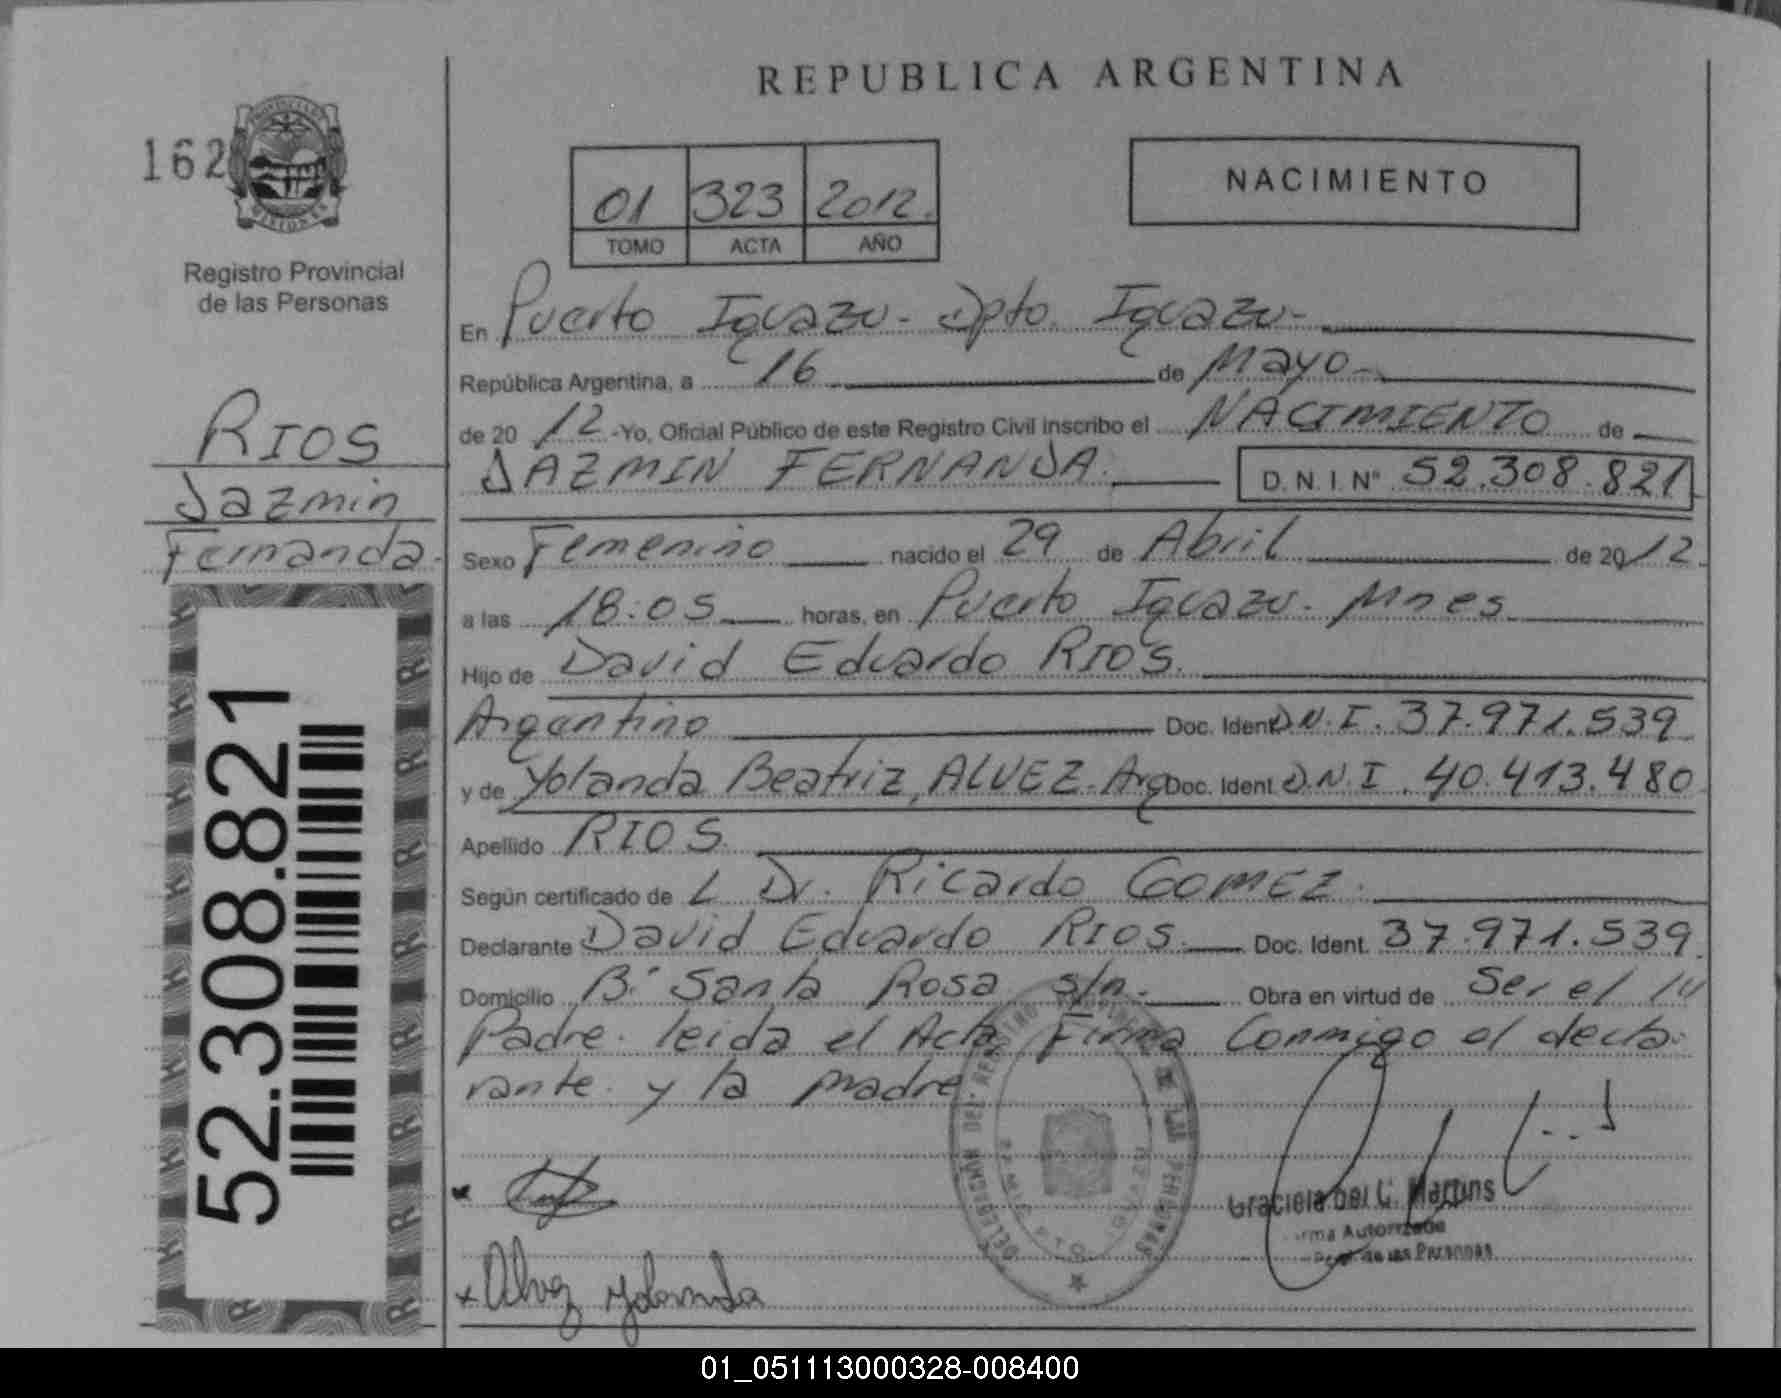 REPUBLICA ARGENTINA
162
NACIMIENTO
01 323 2012.
TOMO ACTA AÑO
Registro Provincial
de las Personas
RIOS
Jazmin
Fernanda.
52.308.821
En Puerto Iguazu - Dpto. Iguazu-
República Argentina, a 16 de Mayo-
de 20 12 -Yo, Oficial Público de este Registro Civil inscribo el NACIMIENTO de
JAZMIN FERNANDA. D.N.I. Nº 52.308.821
Sexo Femenino nacido el 29 de Abril de 20 12.
a las 18:05 horas, en Puerto Iguazu. Mnes
Hijo de David Eduardo RIOS.
Argentino Doc. Ident D.N.I. 37.971.539
y de Yolanda Beatriz, ALVEZ. Arg Doc. Ident D.N.I. 40.413.480
Apellido RIOS
Según certificado de L Dr. Ricardo GOMEZ.
Declarante David Eduardo RIOS. Doc. Ident. 37.971.539.
Domicilio Bº Santa Rosa s/n. Obra en virtud de Ser el
Padre. leida el Acta, Firma Conmigo el decla-
rante. y la madre
DELEGACION DEL REGISTRO DE LAS PERSONAS
Graciela Del C. Martins
Firma Autorizada
de las Personas
x Alvez Yolanda
01_051113000328-008400